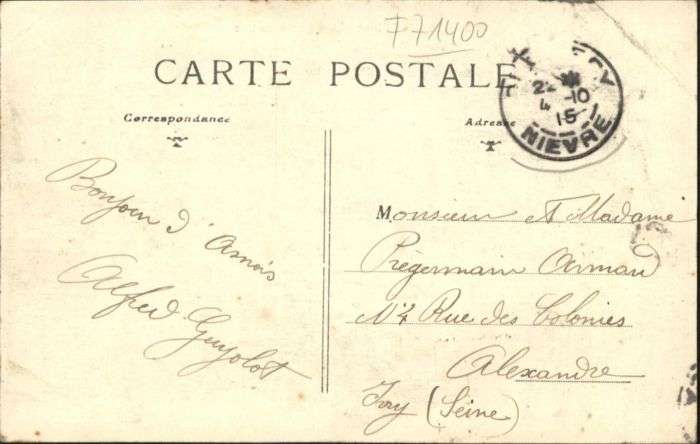 F71400
CARTE POSTALE
Correspondance
Adresse
22-10
4 15
NIEVRE
Bonjour d'Amis
Alfred Guyolot
Monsieur et Madame
Prégermain Armand
N° 4 Rue des Colonies
Alexandre
Ivry (Seine)